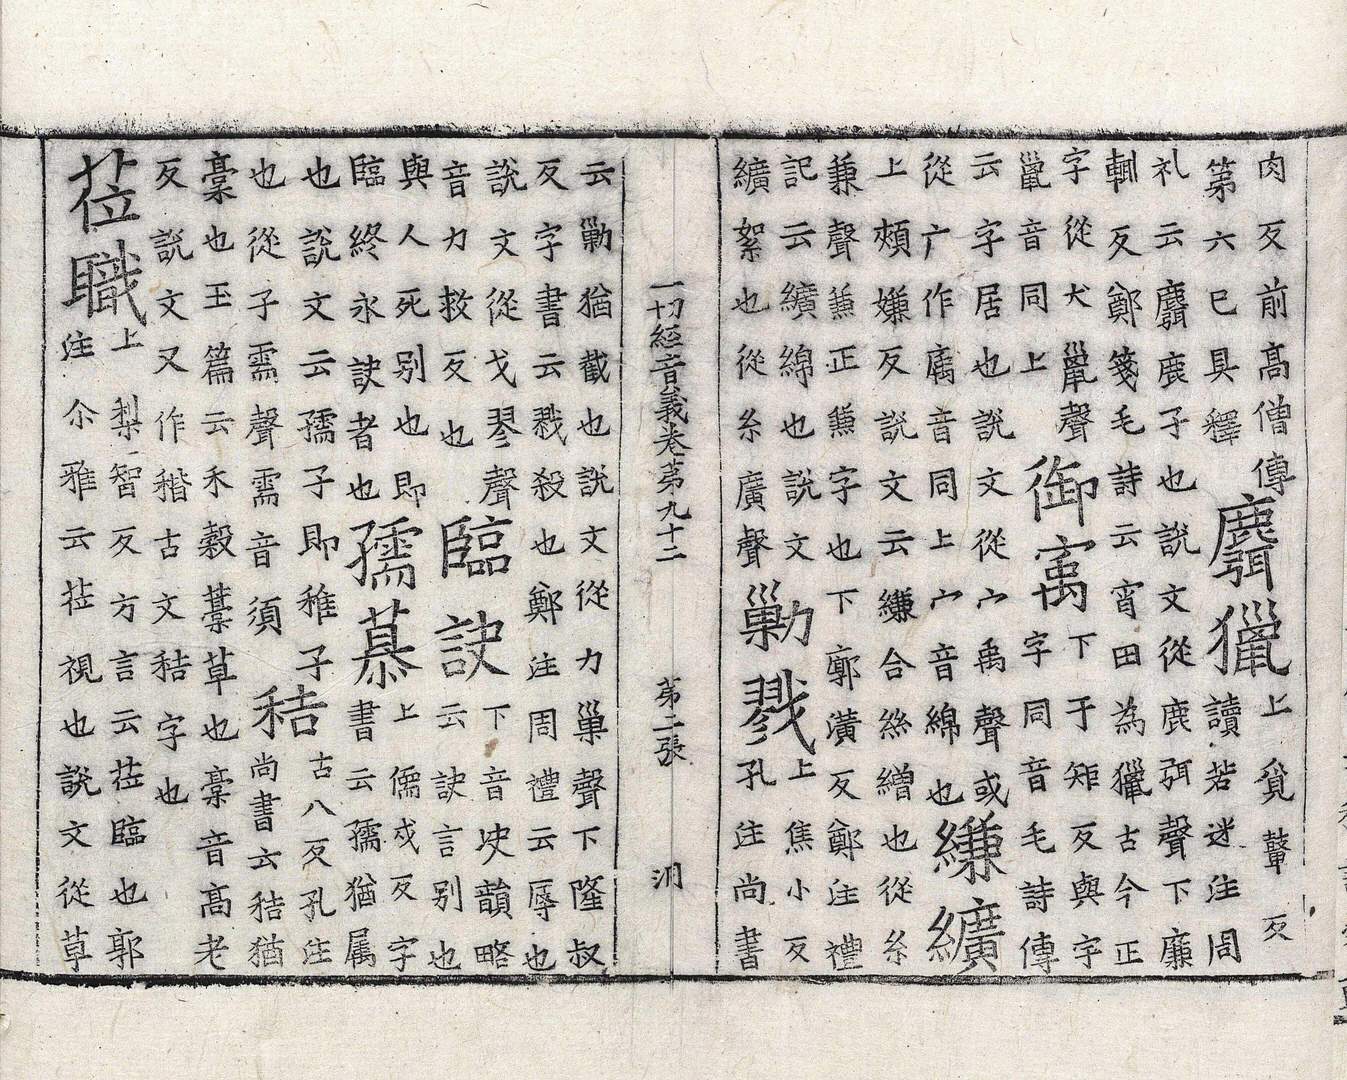 肉反前髙僧傳第六已具釋麛獵上覓鼙反讀若迷注周
礼云麛鹿子也說文從鹿弭聲下廉輒反鄭箋毛詩云宵田為獵古今正
字從犬巤聲巤音同上御㝢下于矩反與字字同音毛詩傳
云字居也說文從宀禹聲或從广作㢏音同上宀音綿也縑纊
上頰嫌反說文云縑合絲繒也從糸兼聲蒹正蒹字也下廓潢反鄭注禮
記云纊綿也說文纊絮也從糸廣聲勦戮上焦小反孔注尚書
一切經音義卷第九十二 第二張 洞
云勦猶截也說文從力巢聲下隆叔反字書云戮殺也鄭注周禮云辱也
說文從戈翏聲音力救反也臨訣下音玦韻略云訣言别也
與人死别也即臨終永訣者也孺慕上儒戍反字書云孺猶属
也說文云孺子即稚子也從子需聲需音須秸古八反孔注尚書云秸猶
稾也玉篇云禾穀藁草也稾音髙老反說文又作稭古文秸字也
莅職上梨智反方言云莅臨也郭注尒雅云莅視也說文從草